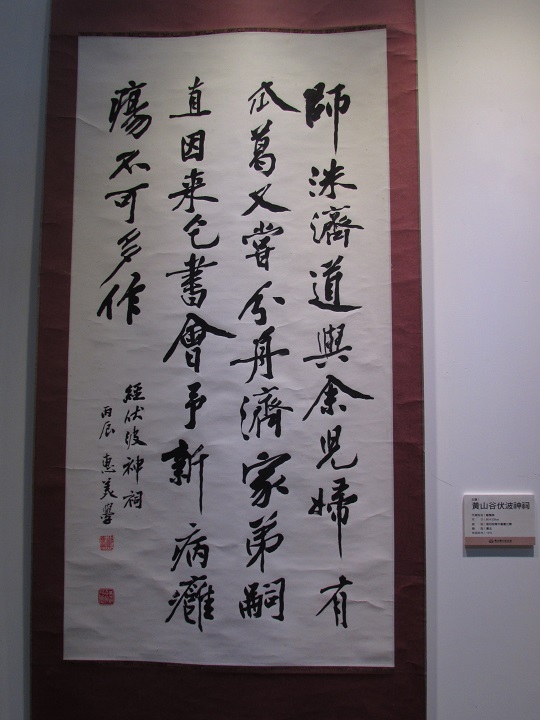 師洙濟道與余兒婦有
瓜葛又嘗分舟濟家弟嗣
直因来乞書會予新病癰
瘍不可多作
經伏波神祠
丙辰 惠美學
黃山谷伏波神祠